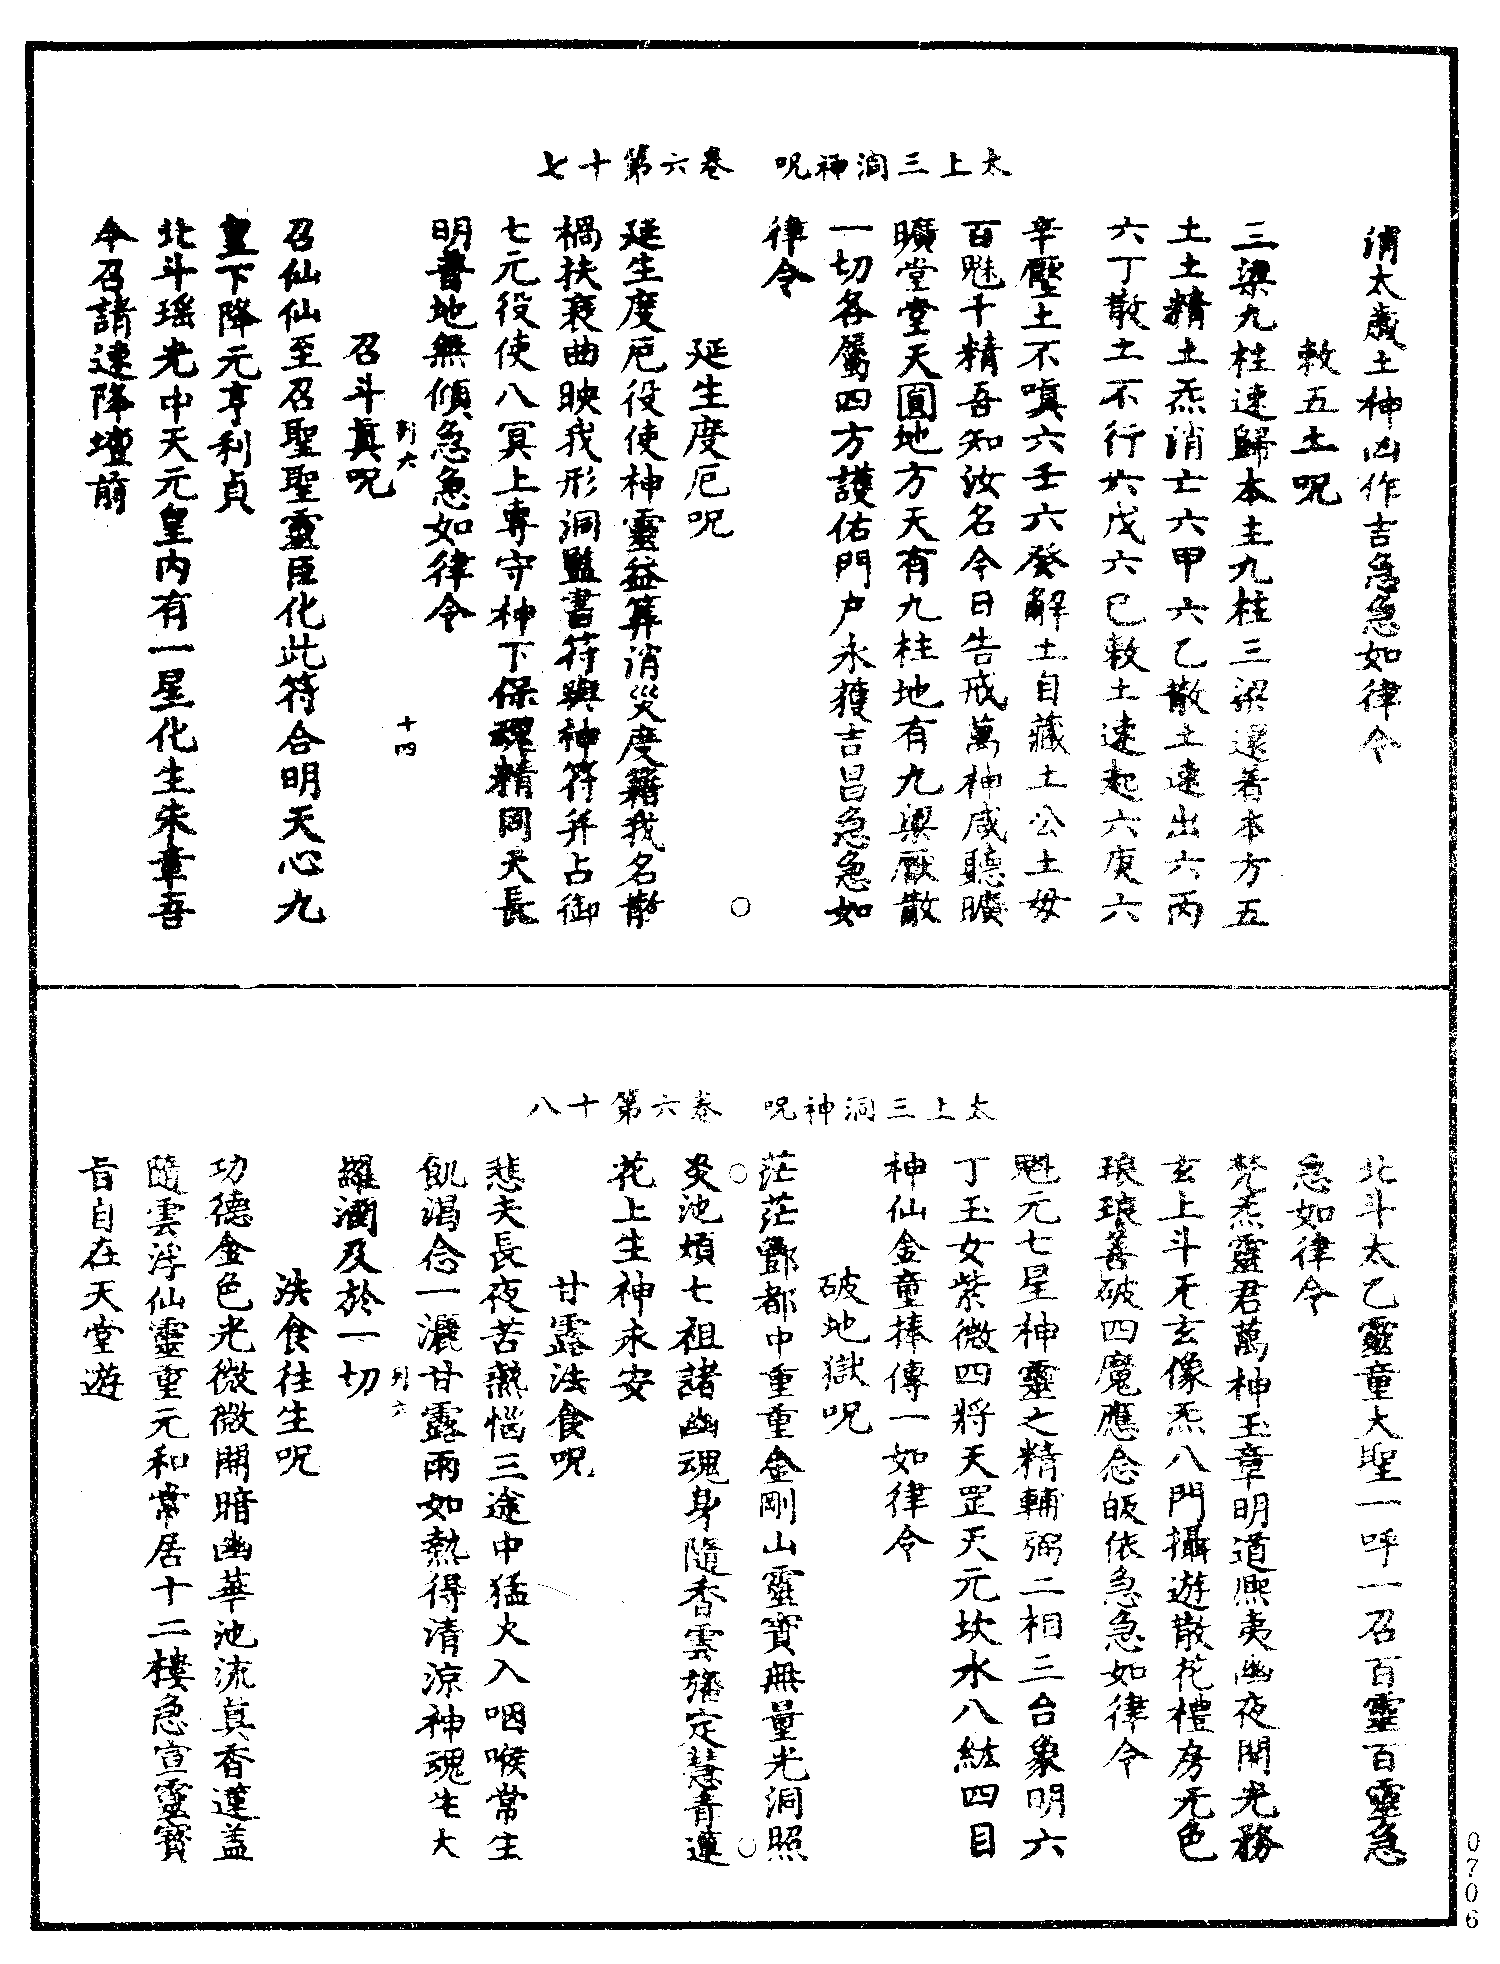 太上三洞神呪　卷六第十七
消太歲土神凶作吉急急如律令
敕五土呪
三梁九柱速歸本主九柱三梁還着本方五
土土精土炁消亡六甲六乙散土速出六丙
六丁散土不行六戊六己敕土速起六庚六
辛壓土不嗔六壬六癸解土自藏土公土母
百魅千精吾知汝名今日告戒萬神咸聽曠
曠堂堂天圓地方天有九柱地有九梁厭散
一切各屬四方護佑門户永獲吉昌急急如
律令
延生度厄呪
延生度厄役使神靈益筭消災度籍我名散
禍扶衰曲映我形洞監書符與神符并占御
七元役使八冥上專守神下保魂精同天長
明書地無傾急急如律令
召斗真呪
十四
召仙仙至召聖聖靈臣化此符合明天心九
皇下降元亨利貞
北斗瑤光中天元皇内有一星化生朱章吾
今召請速降壇前
太上三洞神呪　卷六第十八
北斗太乙靈童大聖一呼一召百靈百靈急
急如律令
梵炁靈君萬神玉章明道熙夷幽夜開光務
玄上斗无玄像炁八門攝遊散花禮房无色
琅琅善破四魔應念皈依急急如律令
魁元七星神靈之精輔弼二相三台象明六
丁玉女紫微四將天罡天元坎水八紘四目
神仙金童捧傳一如律令
破地獄呪
茫茫酆都中重重金剛山靈寶無量光洞照
炎池煩七祖諸幽魂身隨香雲旛定慧青蓮
花上生神永安
甘露法食呪
悲夫長夜苦熱惱三途中猛火入咽喉常生
飢渴念一灑甘露雨如熱得清涼神魂生大
羅潤及於一切
洪食往生呪
功德金色光微微開暗幽華池流真香蓮盖
隨雲浮仙靈重元和常居十二樓急宣靈寶
旨自在天堂遊
0706